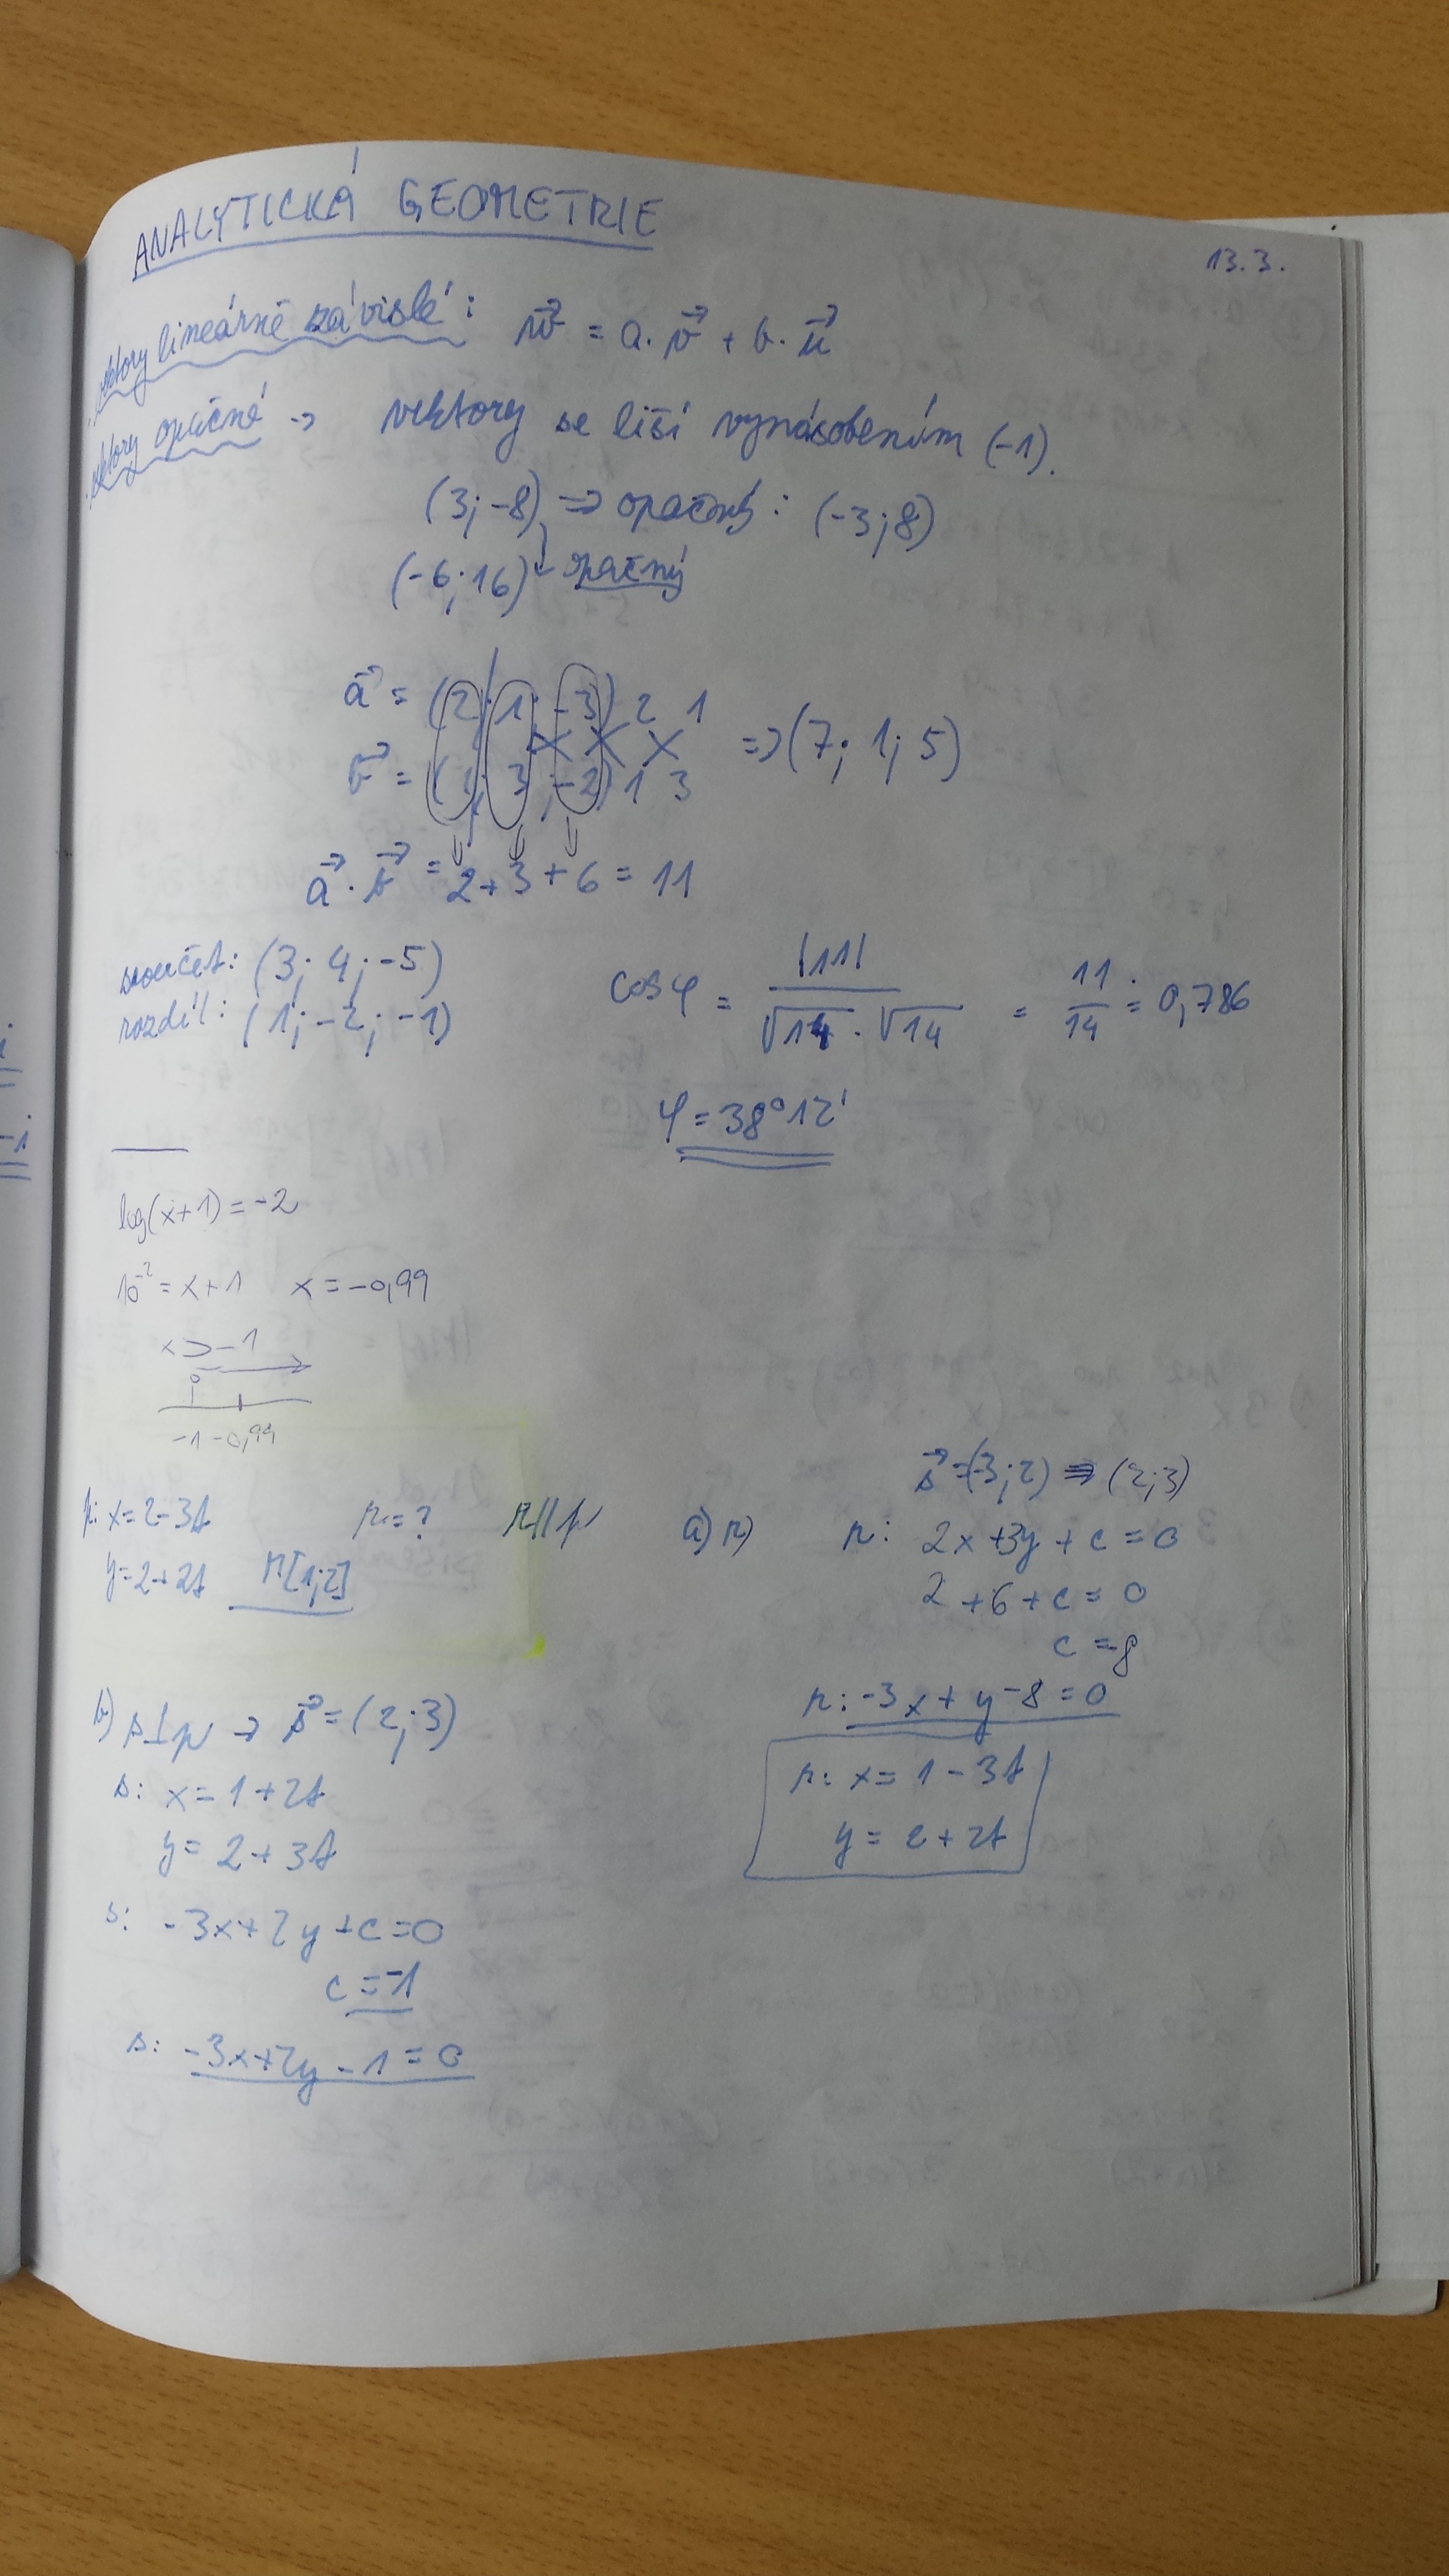 ANALYTICKÁ GEOMETRIE
13.3.
vektory lineárně závislé: w⃗ = a. v⃗ + b. u⃗
vektory opačné → vektory se liší vynásobením (-1).
(3; -8) ⇒ opačný: (-3; 8)
(-6; 16) opačný
a⃗ = (2; 1; -3) 2 1
b⃗ = (1; 3; -2) 1 3 ⇒ (7; 1; 5)
a⃗ . b⃗ = 2+3+6 = 11
součet: (3; 4; -5)
rozdíl: (1; -2; -1)
cos φ = |11| / √14 . √14 = 11/14 = 0,786
φ = 38°12'
log(x+1) = -2
10⁻² = x+1 x = -0,99
x > -1
-1 -0,99
p: x = 2-3t r = ? r || p
y = 2+2t M[1;2]
a) r) s⃗ = (-3; 2) ⇒ (2; 3)
r: 2x+3y+c = 0
2+6+c = 0
c = -8
r: -3x+y-8 = 0
r: x = 1-3t
y = 2+2t
b) s⊥p → s⃗ = (2; 3)
s: x = 1+2t
y = 2+3t
s: -3x+2y+c = 0
c = -1
s: -3x+2y-1 = 0